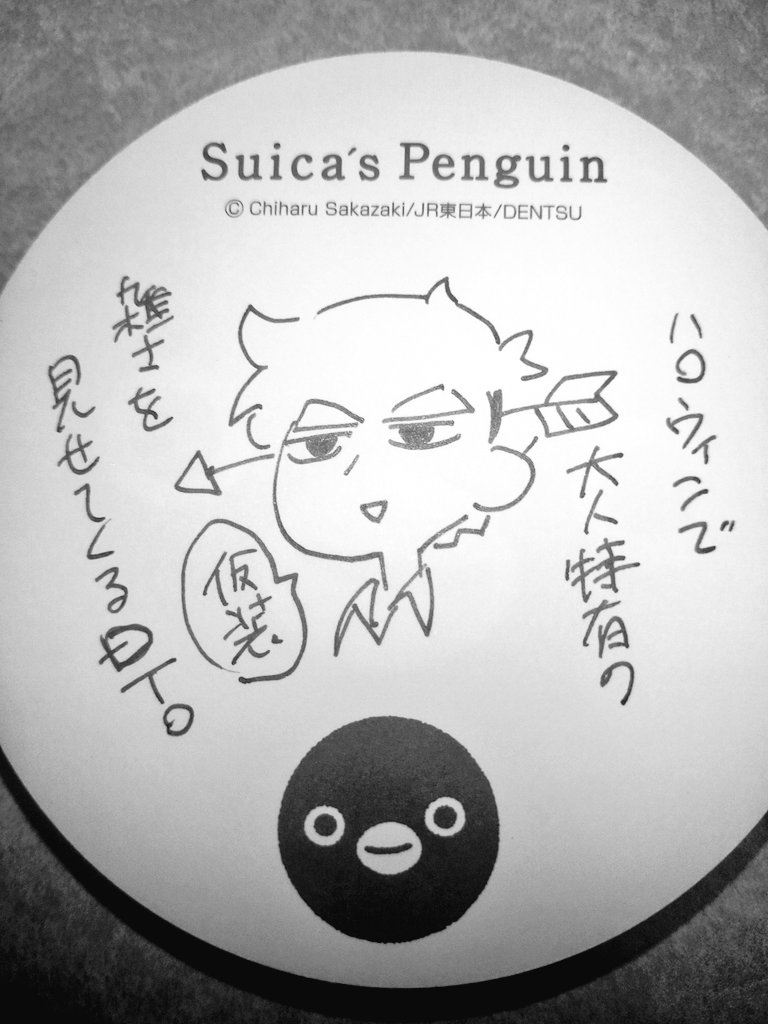 Suica's Penguin
© Chiharu Sakazaki/JR東日本/DENTSU
ハロウィンで
大人特有の
雑さを
見せてくるDTO
仮装